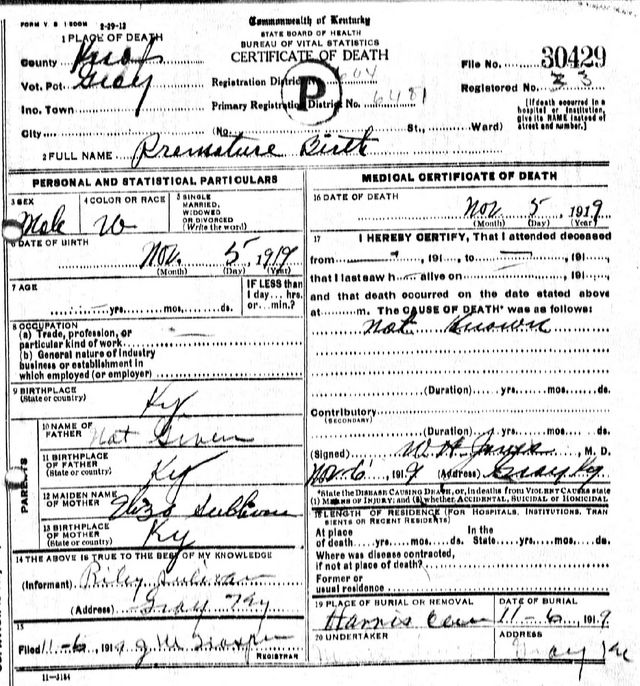 FORM V S 1 500M 8-29-13
Commonwealth of Kentucky
STATE BOARD OF HEALTH
BUREAU OF VITAL STATISTICS
CERTIFICATE OF DEATH
1 PLACE OF DEATH
County Knox
Vot. Pct. Gray
Inc. Town
City (No. St., Ward)
Registration District 604
Primary Registration District No. 6481
P
File No. 30429
Registered No. 33
[If death occurred in a hospital or institution, give its NAME instead of street and number.]
2 FULL NAME Premature Birth
PERSONAL AND STATISTICAL PARTICULARS
3 SEX Male
4 COLOR OR RACE W
5 SINGLE MARRIED, WIDOWED OR DIVORCED (Write the word)
6 DATE OF BIRTH Nov. 5, 1919
(Month) (Day) (Year)
7 AGE
yrs. mos. ds.
IF LESS than 1 day... hrs. or... min.?
8 OCCUPATION
(a) Trade, profession, or particular kind of work
(b) General nature of industry business or establishment in which employed (or employer)
9 BIRTHPLACE (State or country) Ky
PARENTS
10 NAME OF FATHER Nat
11 BIRTHPLACE OF FATHER (State or country) Ky
12 MAIDEN NAME OF MOTHER Sullivan
13 BIRTHPLACE OF MOTHER (State or country) Ky
14 THE ABOVE IS TRUE TO THE BEST OF MY KNOWLEDGE
(Informant) Riley Sulivan
(Address) Gray Ky
15
Filed 11-6, 1919
REGISTRAR
11-3184
MEDICAL CERTIFICATE OF DEATH
16 DATE OF DEATH
Nov. 5, 1919
(Month) (Day) (Year)
17 I HEREBY CERTIFY, That I attended deceased
from , 191 , to , 191 ,
that I last saw h alive on , 191 ,
and that death occurred on the date stated above
at m. The CAUSE OF DEATH* was as follows:
Not Known
(Duration) yrs. mos. ds.
Contributory
(SECONDARY)
(Duration) yrs. mos. ds.
(Signed) W. H. , M. D.
Nov 6, 1919 (Address) Gray Ky
*State the DISEASE CAUSING DEATH, or, in deaths from VIOLENT CAUSES state (1) MEANS OF INJURY; and (2) whether ACCIDENTAL, SUICIDAL or HOMICIDAL.
18 LENGTH OF RESIDENCE (FOR HOSPITALS, INSTITUTIONS, TRANSIENTS OR RECENT RESIDENTS)
At place of death yrs. mos. ds. In the State yrs. mos. ds.
Where was disease contracted, if not at place of death?
Former or usual residence
19 PLACE OF BURIAL OR REMOVAL Harris Cem
DATE OF BURIAL 11-6, 1919
20 UNDERTAKER
ADDRESS Gray Ky